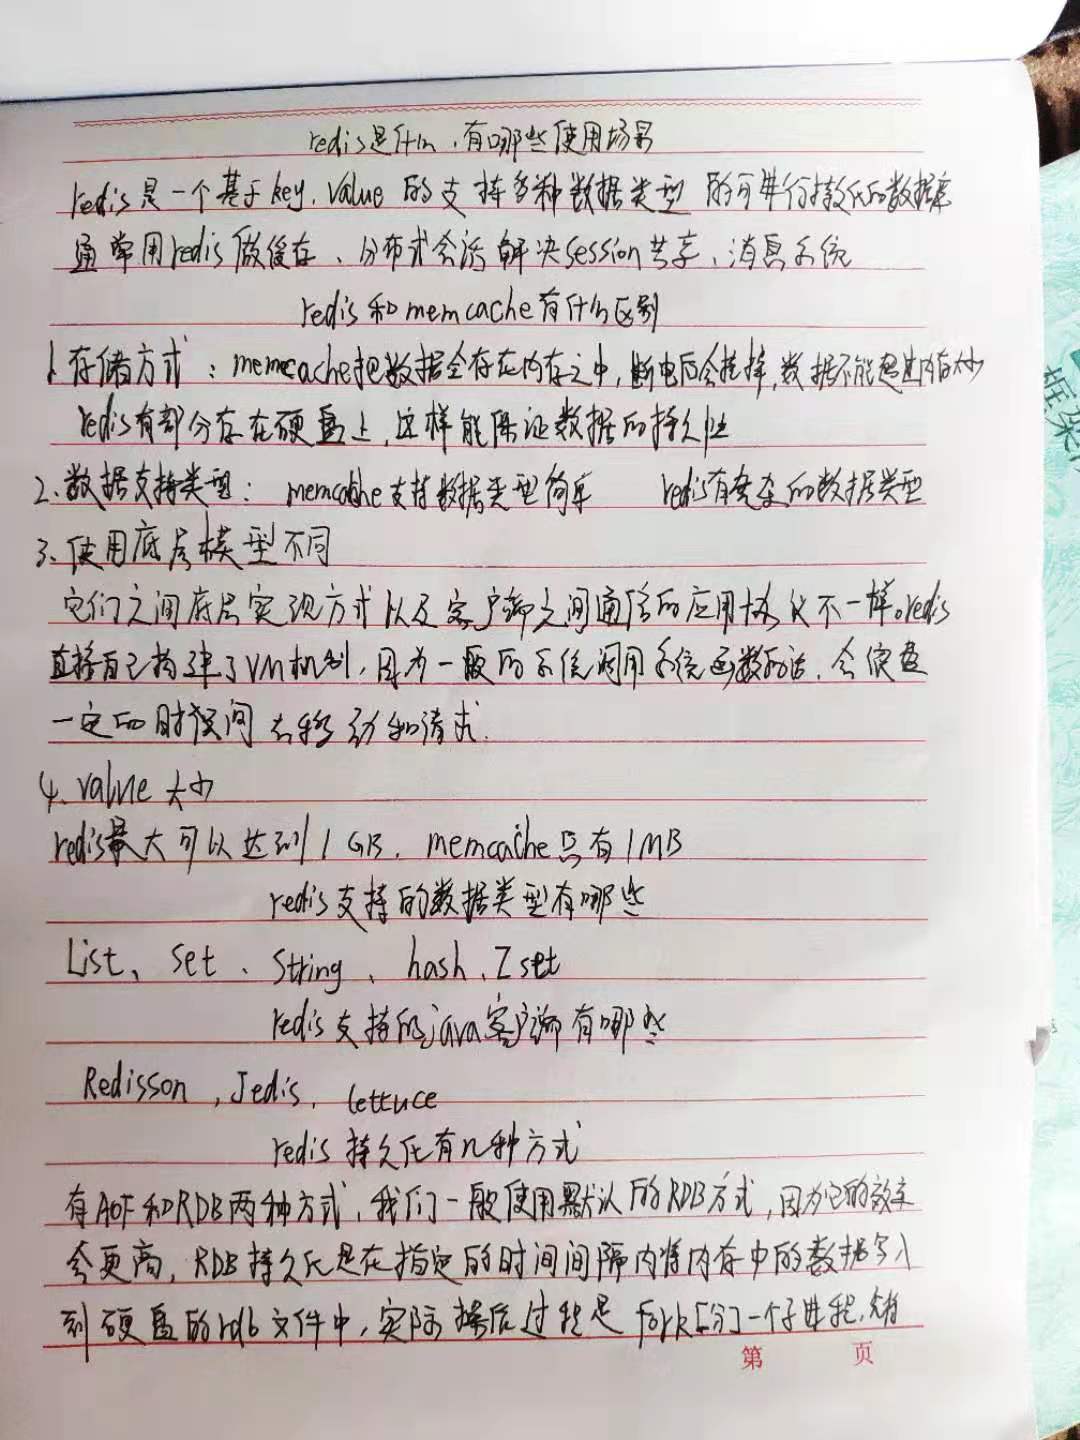 redis是什么，有哪些使用场景
redis是一个基于key.value的支持多种数据类型的可进行持久化的数据库
通常用redis做缓存、分布式会话解决session共享、消息系统
redis和memcache有什么区别
1.存储方式：memecache把数据全存在内存之中，断电后会挂掉，数据不能超过内存大小
redis有部分存在硬盘上，这样能保证数据的持久性
2.数据支持类型：memcache支持数据类型简单 redis有复杂的数据类型
3、使用底层模型不同
它们之间底层实现方式以及客户端之间通信的应用协议不一样。redis
直接自己构建了VM机制，因为一般的系统调用系统函数的话，会浪费
一定的时间去移动和请求.
4、value大小
redis最大可以达到1GB，memcache只有1MB
redis支持的数据类型有哪些
List、set、string、hash、Zset
redis支持的java客户端有哪些
Redisson，Jedis，lettuce
redis持久化有几种方式
有AOF和RDB两种方式，我们一般使用默认的RDB方式，因为它的效率
会更高，RDB持久化是在指定的时间间隔内将内存中的数据写入
到硬盘的rdb文件中，实际操作过程是fork一个子进程，先将
第 页
框架